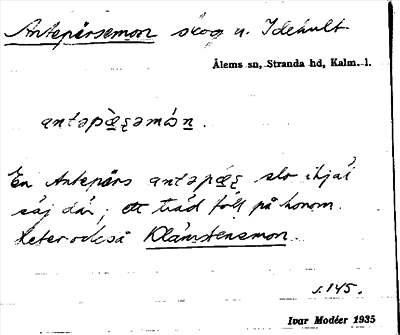 Antepärsemon skog u. Idehult
Ålems sn, Stranda hd, Kalm. l.
antəpæ̀ʂəmón.
En Antepärs antəpǽʂ slo ihjäl
säj där; ett träd föll på honom.
heter också Klämstensmon.
s. 145.
Ivar Modéer 1935